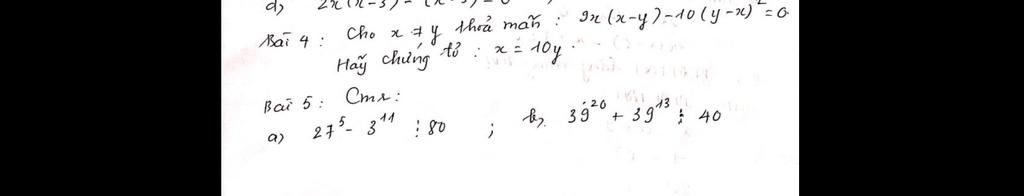 d) 2x(x-3) - (x-3) = 0
Bài 4 : Cho x ≠ y thoả mãn : 9x(x-y)-10(y-x)² = 0
Hãy chứng tỏ : x = 10y .
Bài 5 : Cmr :
a) 27⁵ - 3¹¹ ⋮ 80 ; b, 39²⁰ + 39¹³ ⋮ 40